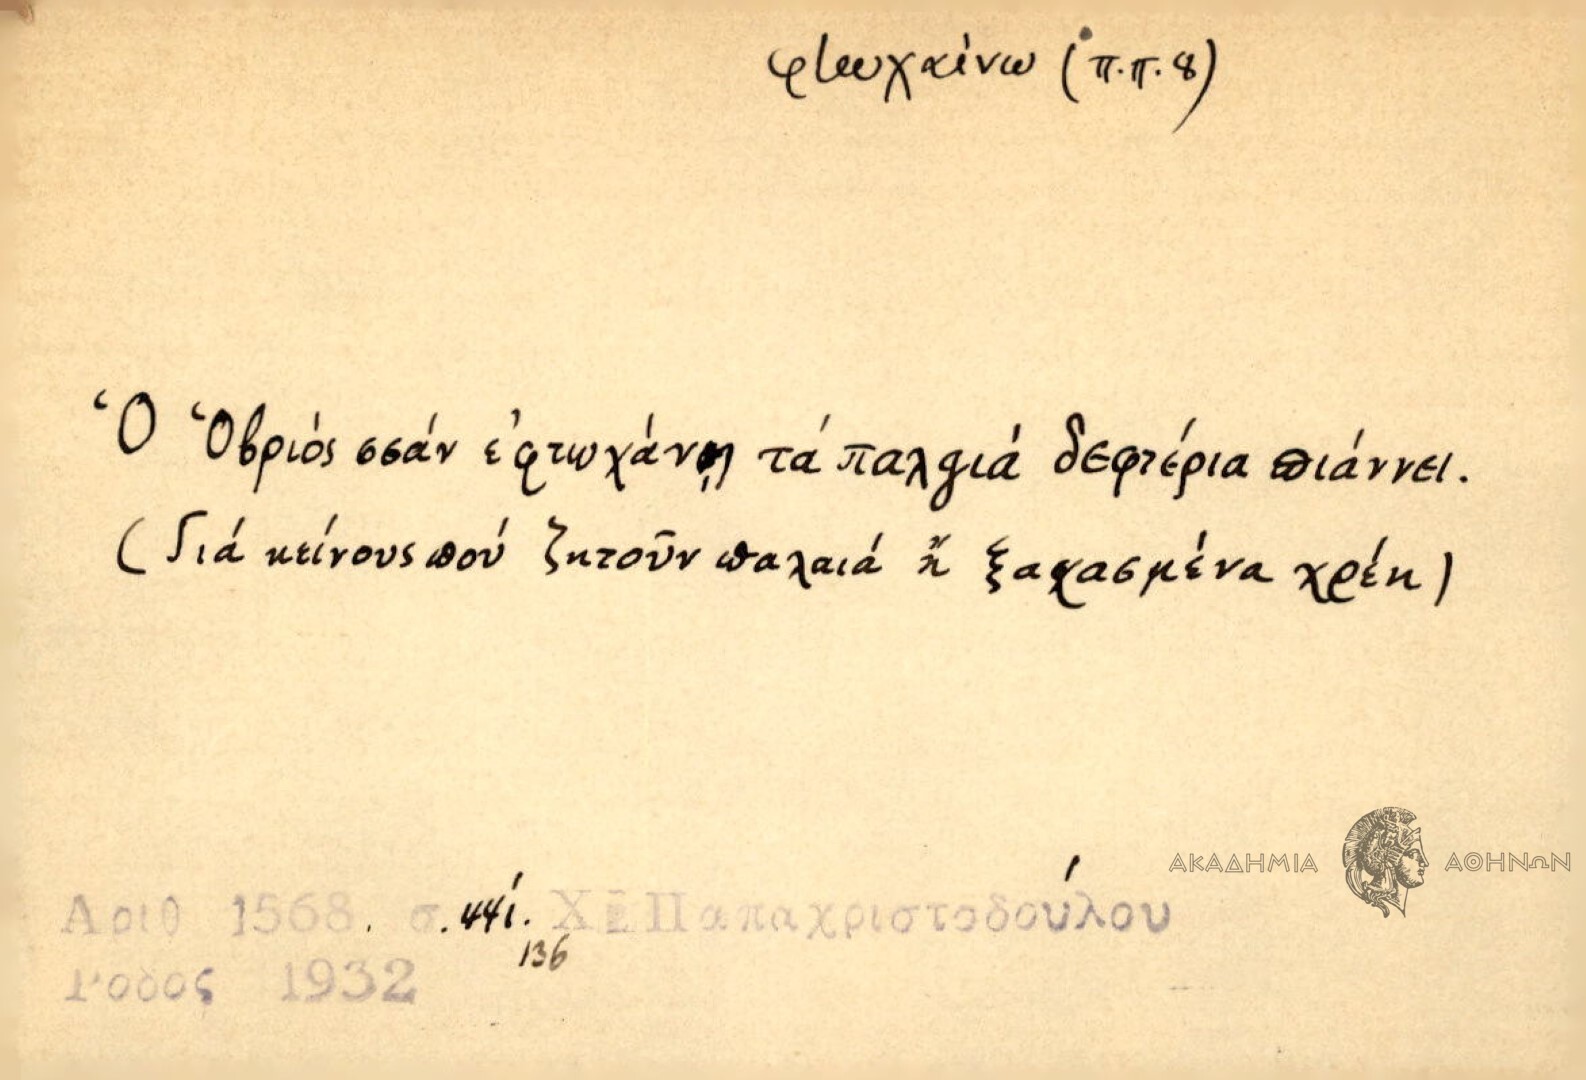 φτωχαίνω (π.π. 8)
Ὁ Ὁβριός σσάν ἐφτωχάνῃ τά παλγιά δεφτέρια πιάννει.
(Γιά κείνους πού ζητοῦν παλαιά ἤ ξαχασμένα χρέη)
ΑΚΑΔΗΜΙΑ ΑΘΗΝΩΝ
Αριθ 1568. σ. 441. Χ Παπαχριστοδούλου
136
Ροδος 1932